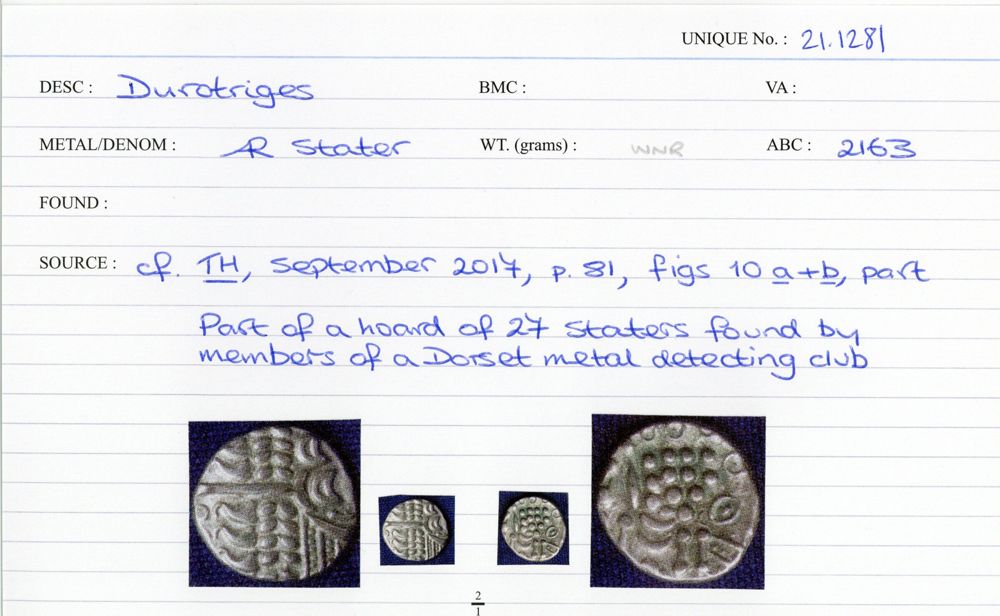 UNIQUE No. : 21.1281
DESC : Durotriges BMC : VA :
METAL/DENOM : AR Stater WT. (grams) : WNR ABC : 2163
FOUND :
SOURCE : cf. TH, September 2017, p. 81, figs 10 a+b, part
Part of a hoard of 27 staters found by
members of a Dorset metal detecting club
2
1